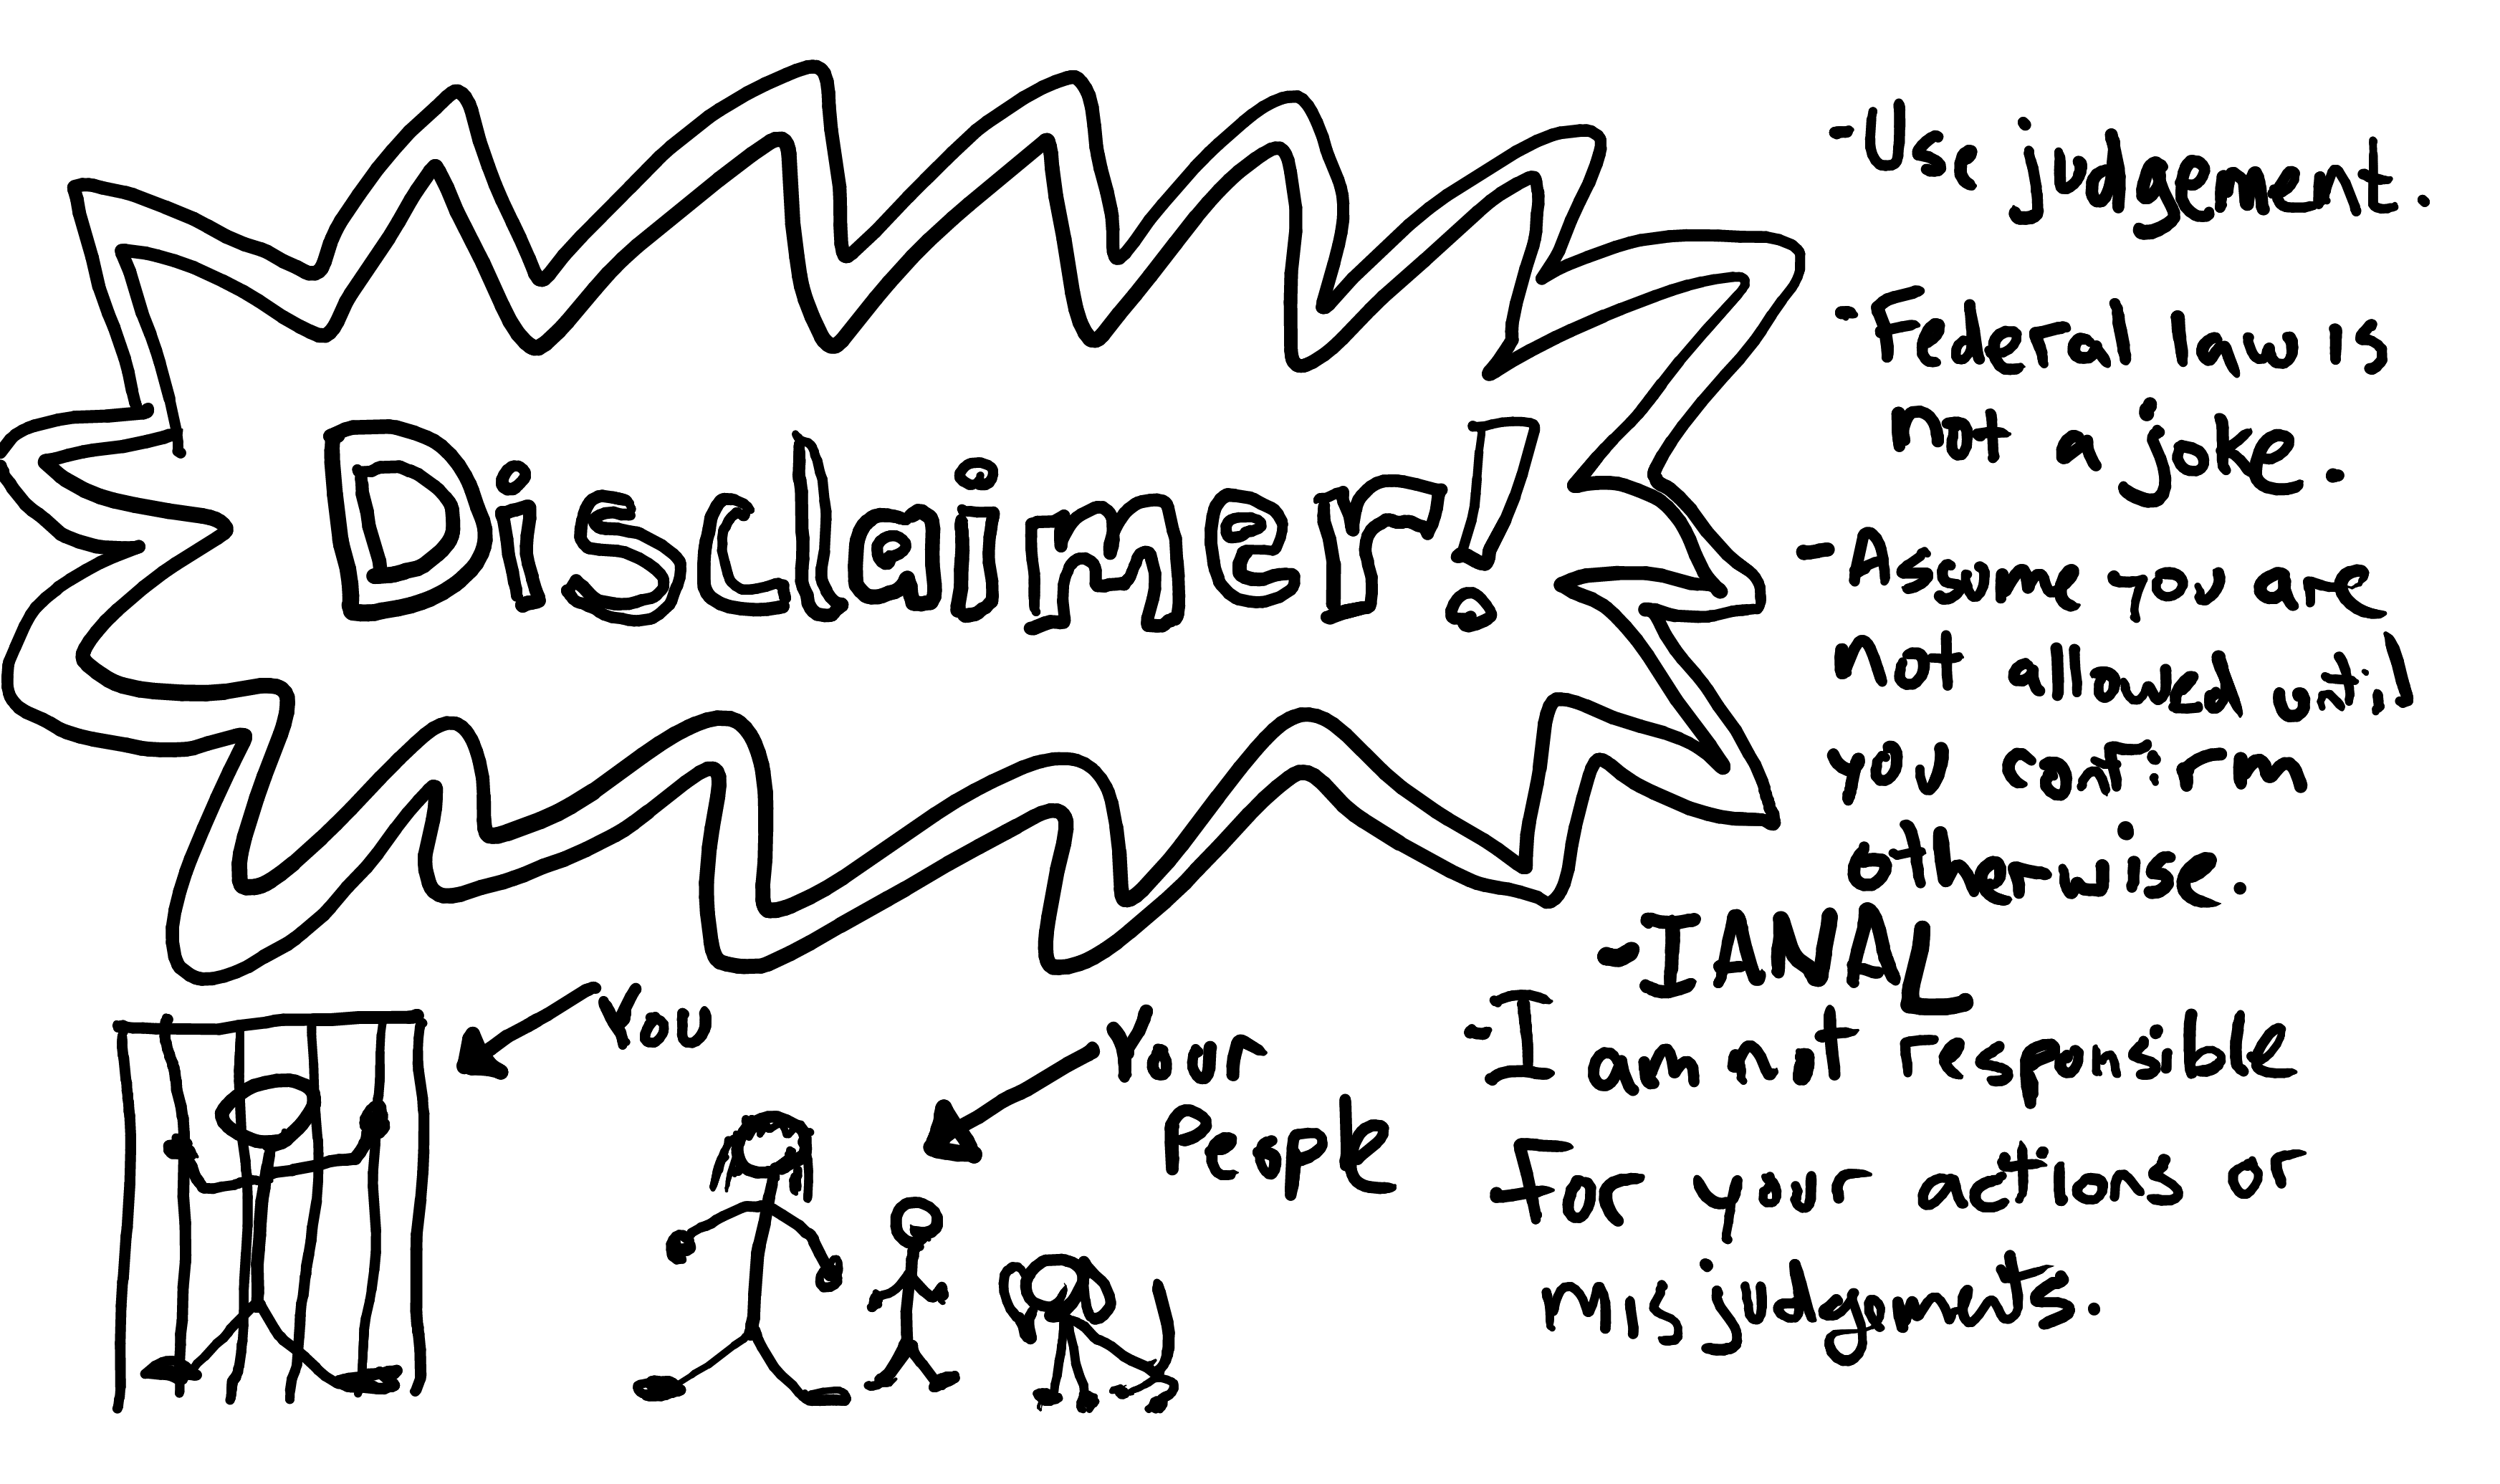 Disclaimer!
-Use judgement.
-Federal law is
not a joke.
-Assume you are
not allowed until
you confirm
otherwise.
-IANAL
-I am not responsible
for your actions or
misjudgments.
You
Your
People